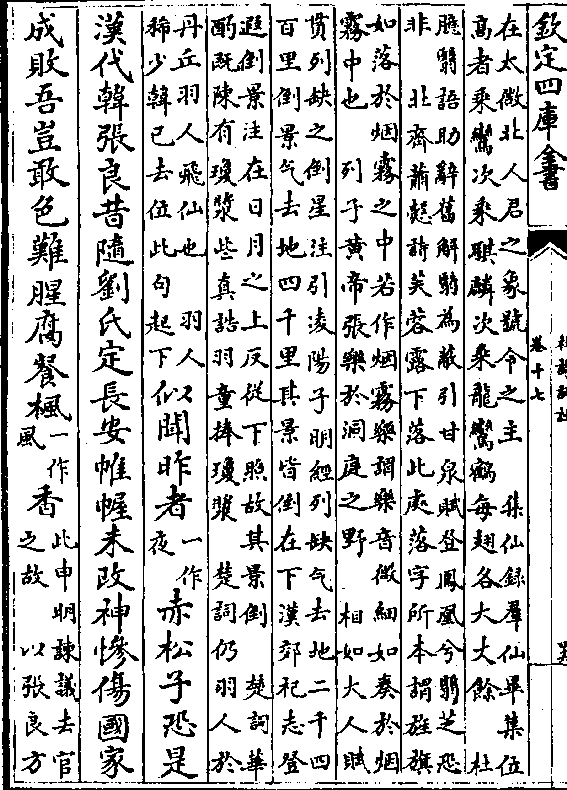 欽定四庫全書
杜詩詳註
卷十七
在太微北人君之象號令之主　集仙録羣仙畢集位
高者乘鸞次乘騏麟次乘龍鸞鶴每翅各大丈餘　杜
臆翳語助辭舊解翳為蔽引甘泉賦登鳳凰兮翳芝恐
非　北齊蕭慤詩芙蓉露下落此處落字所本謂旌旗
如落於烟霧之中若作烟霧樂謂樂音微細如奏於烟
霧中也　列子黄帝張樂於洞庭之野　相如大人賦
貫列缺之倒景注引凌陽子明經列缺气去地二千四
百里倒景气去地四千里其景皆倒在下漢郊祀志登
遐倒景注在日月之上反從下照故其景倒　楚詞華
酌既陳有瓊漿些真誥羽童捧瓊漿　楚詞仍羽人於
丹丘羽人飛仙也　羽人
稀少韓已去位此句起下
似聞昨者一作夜赤松子恐是
漢代韓張良昔隨劉氏定長安帷幄未改神慘傷國家
成敗吾豈敢色難腥腐餐楓一作風香此申明諫議去官之故　以張良方